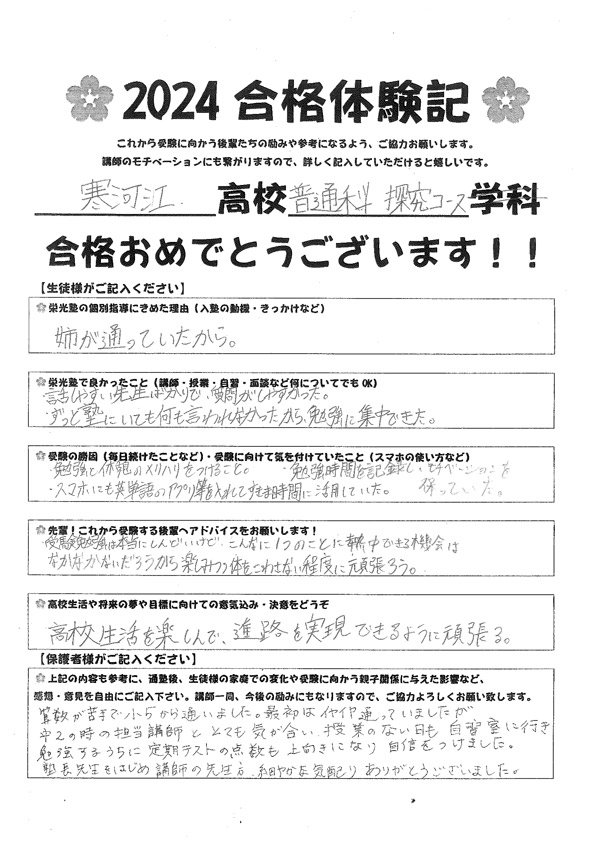 2024 合格体験記
これから受験に向かう後輩たちの励みや参考になるよう、ご協力お願いします。
講師のモチベーションにも繋がりますので、詳しく記入していただけると嬉しいです。
寒河江 高校 普通科 探究コース 学科
合格おめでとうございます！！
【生徒様がご記入ください】
栄光塾の個別指導にきめた理由（入塾の動機・きっかけなど）
姉が通っていたから。
栄光塾で良かったこと（講師・授業・自習・面談など何についてでもOK）
・話しやすい先生ばかりで、質問がしやすかった。
・ずっと塾にいても何も言われなかったから、勉強に集中できた。
受験の勝因（毎日続けたことなど）・受験に向けて気を付けていたこと（スマホの使い方など）
・勉強と休憩のメリハリをつけること。 ・勉強時間を記録し、モチベーションを
・スマホにも英単語のアプリ等を入れてすきま時間に活用していた。 保っていた。
先輩！これから受験する後輩へアドバイスをお願いします！
受験勉強は本当にしんどいけど、こんなに1つのことに熱中できる機会は
なかなかないだろうから楽しみつつ体をこわさない程度に頑張ろう。
高校生活や将来の夢や目標に向けての意気込み・決意をどうぞ
高校生活を楽しんで、進路を実現できるように頑張る。
【保護者様がご記入ください】
上記の内容も参考に、通塾後、生徒様の家庭での変化や受験に向かう親子関係に与えた影響など、
感想・意見を自由にご記入下さい。講師一同、今後の励みにもなりますので、ご協力よろしくお願い致します。
算数が苦手で小5から通いました。最初はイヤイヤ通っていましたが
中2の時の担当講師ととても気が合い、授業のない日も自習室に行き
勉強するうちに定期テストの点数も上向きになり自信をつけました。
塾長先生をはじめ講師の先生方、細やかな気配りありがとうございました。